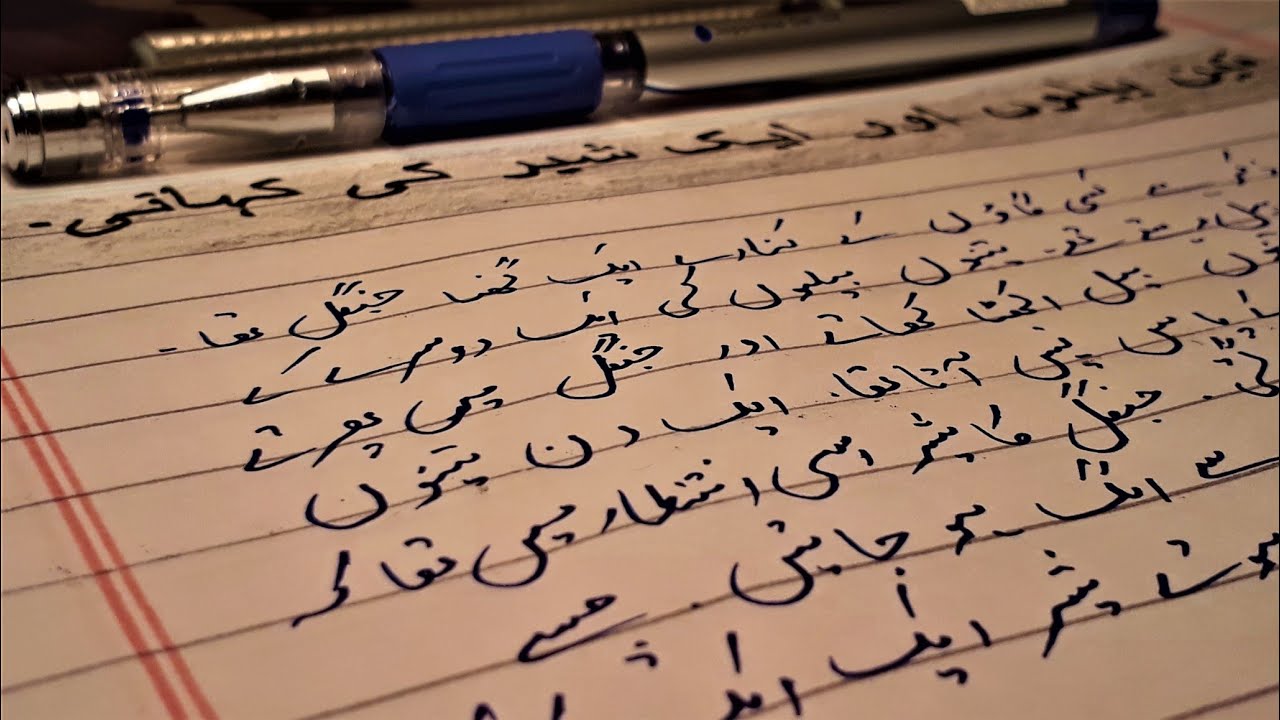 تین بیلوں اور ایک شیر کی کہانی۔
کسی گاؤں کے کنارے ایک گھنا جنگل تھا۔
رہتے تھے۔ تینوں بیلوں کی ایک دوسرے کے
بیل اکھٹا کھاتے اور جنگل میں پھرتے
پاس نہیں آتا تھا۔ ایک دن تینوں
جنگل کا شیر اسی انتظار میں تھا کہ
سے الگ ہو جائیں۔ جیسے
ہوتے شیر ایک ایک